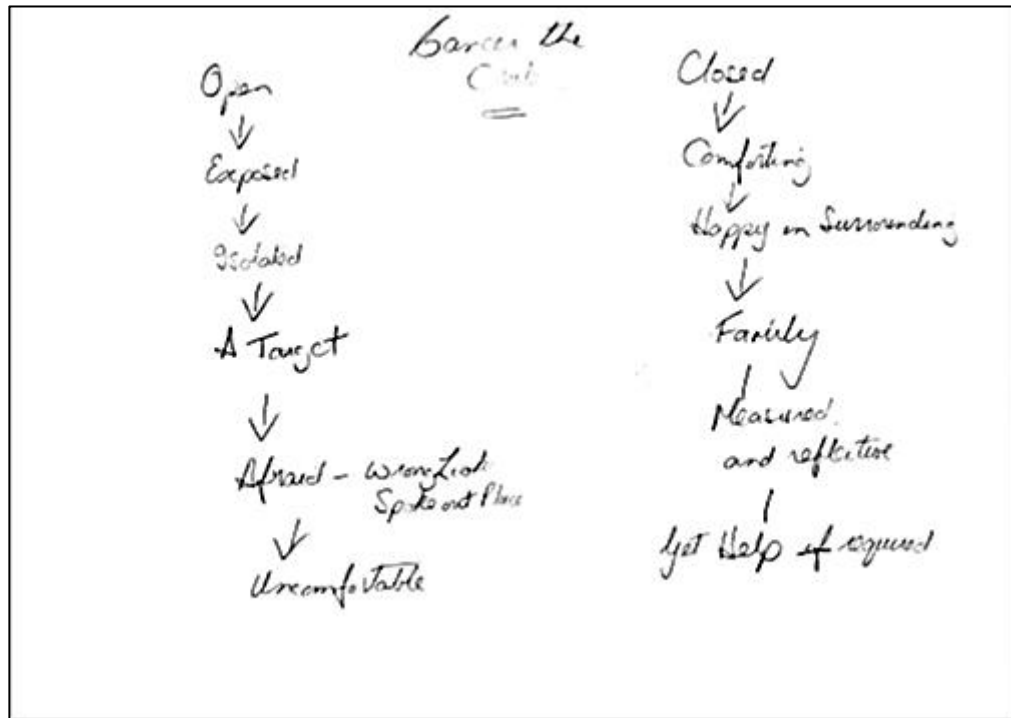 the
Open
Exposed
Isolated
A Target
Afraid - Wrong Look
Spoke out Place
Uncomfortable
Closed
Comforting
Happy in Surrounding
Family
Measured
and reflective
Get Help if required